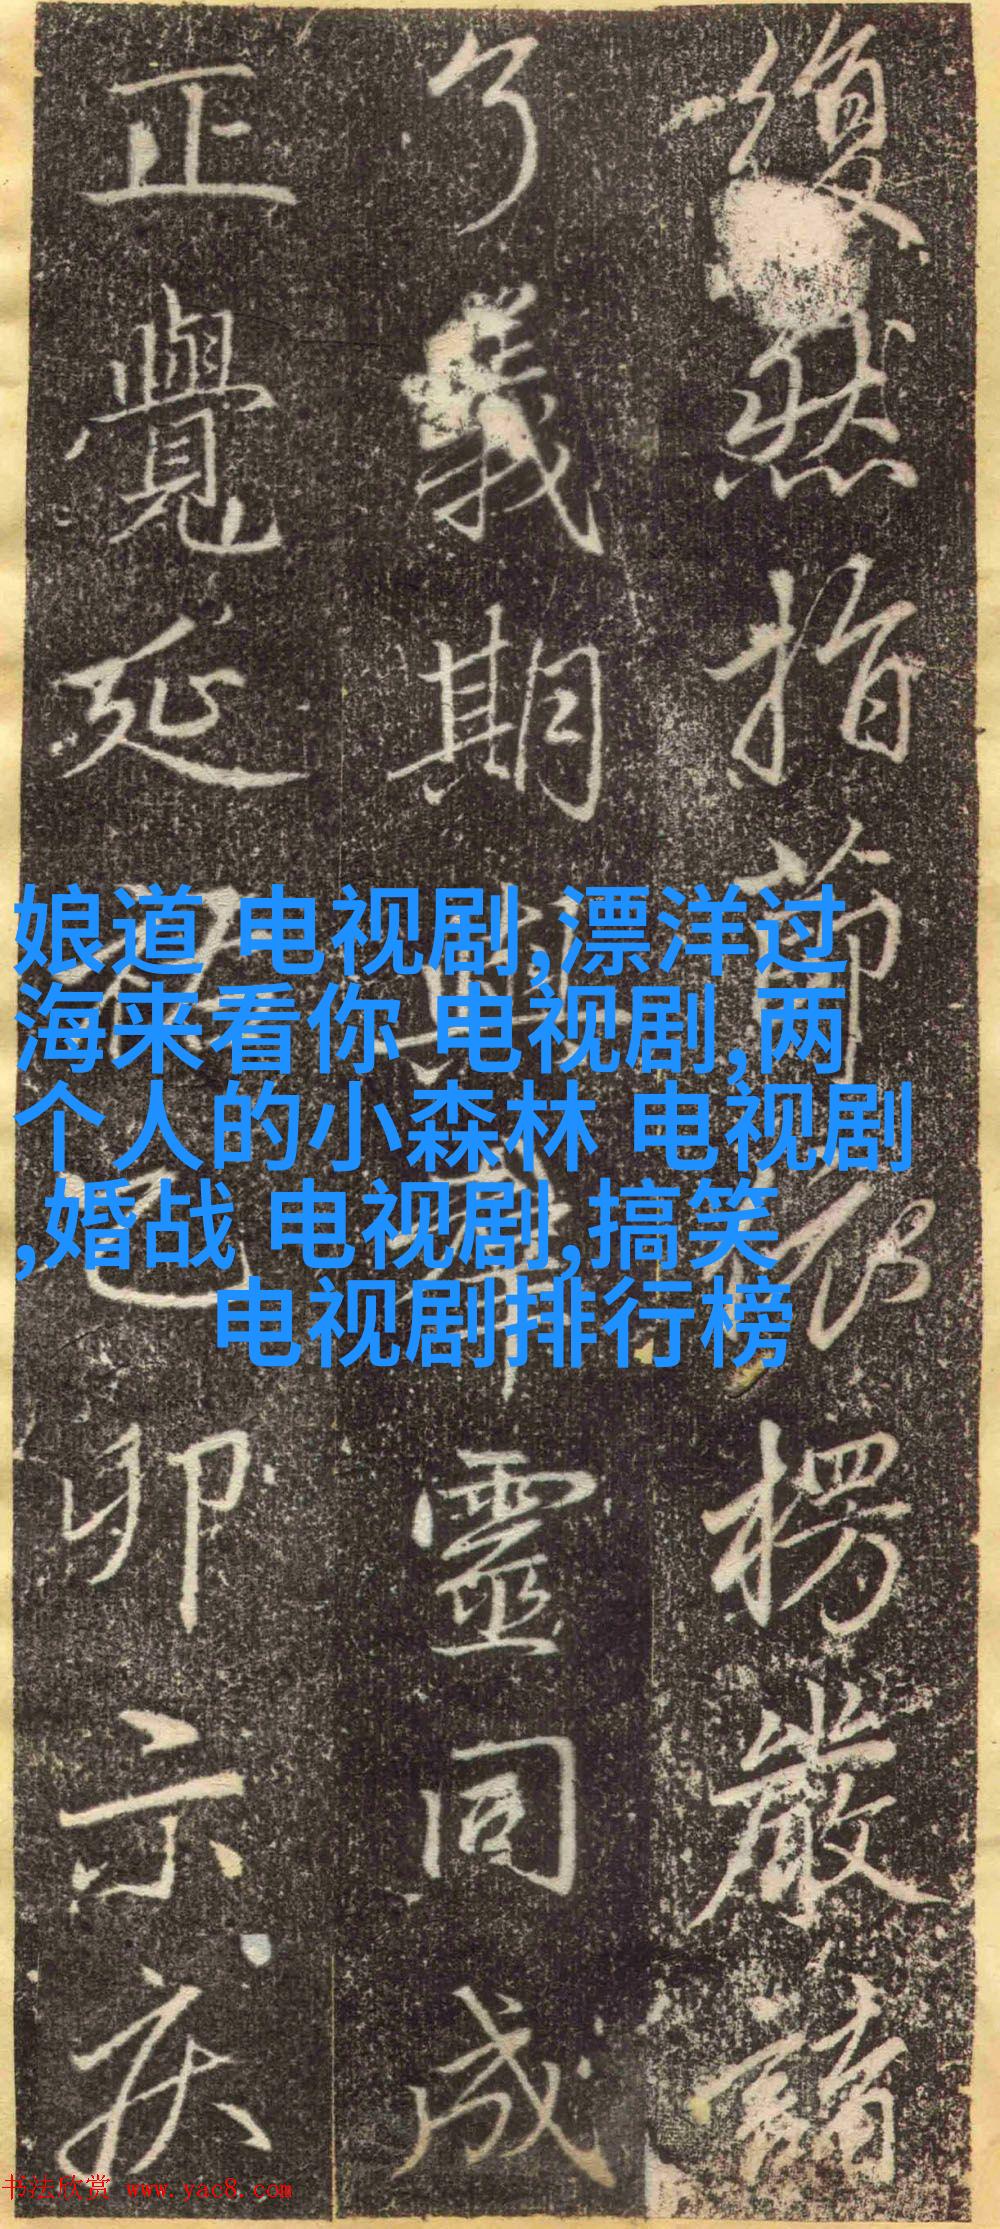 復然指節楞嚴
了義期與羣靈同成
正覺延己卯示疾
娘道 电视剧,漂洋过
海来看你 电视剧,两
个人的小森林 电视剧
,婚战 电视剧,搞笑
电视剧排行榜
书法欣赏 www.yac8.com